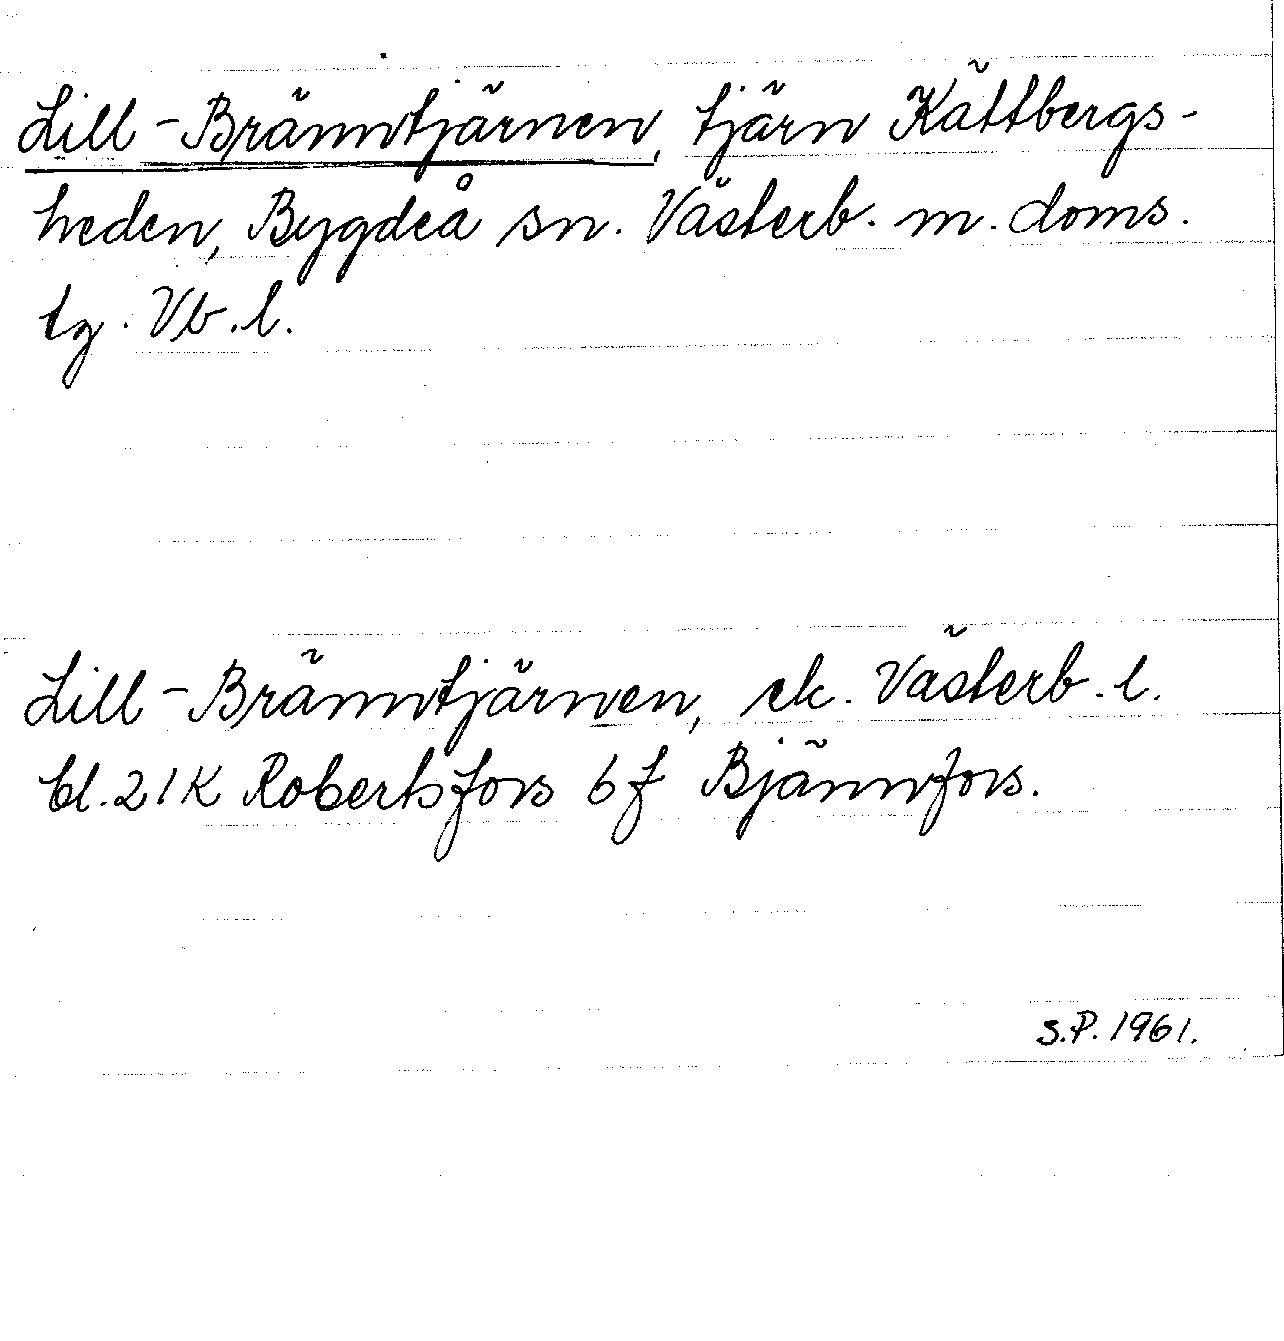 Lill-Bränntjärnen, tjärn Kättbergs-
heden, Bygdeå sn. Västerb. m. doms.
tg. Vb.l.
Lill-Bränntjärnen, ek. Västerb.l.
bl. 21K Robertsfors 6f Bjännfors.
S.P. 1961.